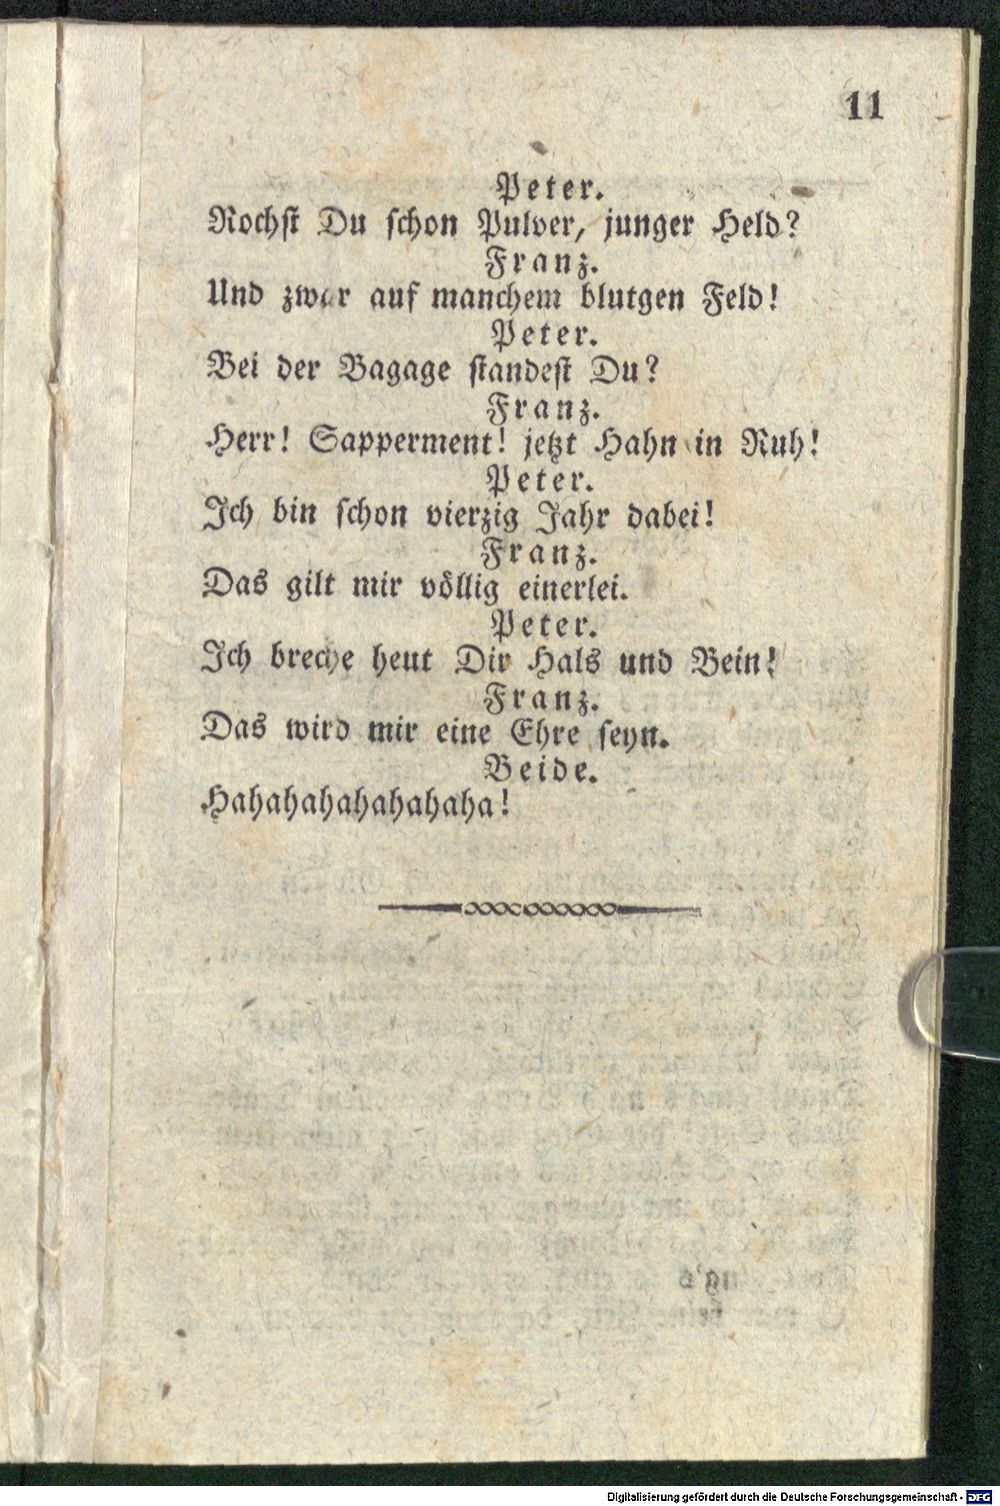 11
Peter.
Rochst Du schon Pulver, junger Held?
Franz.
Und zwar auf manchem blutgen Feld!
Peter.
Bei der Bagage standest Du?
Franz.
Herr! Sapperment! jetzt Hahn in Ruh!
Peter.
Ich bin schon vierzig Jahr dabei!
Franz.
Das gilt mir völlig einerlei.
Peter.
Ich breche heut Dir Hals und Bein!
Franz.
Das wird mir eine Ehre seyn.
Beide.
Hahahahahahahaha!
Digitalisierung gefördert durch die Deutsche Forschungsgemeinschaft - DFG